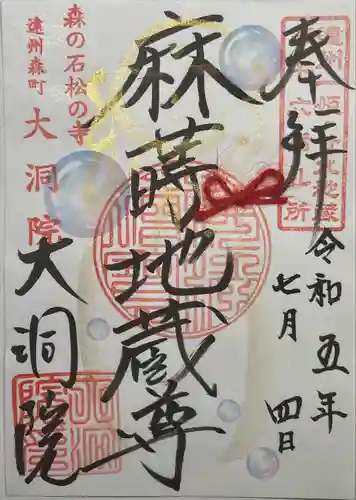 奉拝
令和五年
七月四日
麻蒔地蔵尊
森の石松の寺
遠州森町
大洞院
大洞院